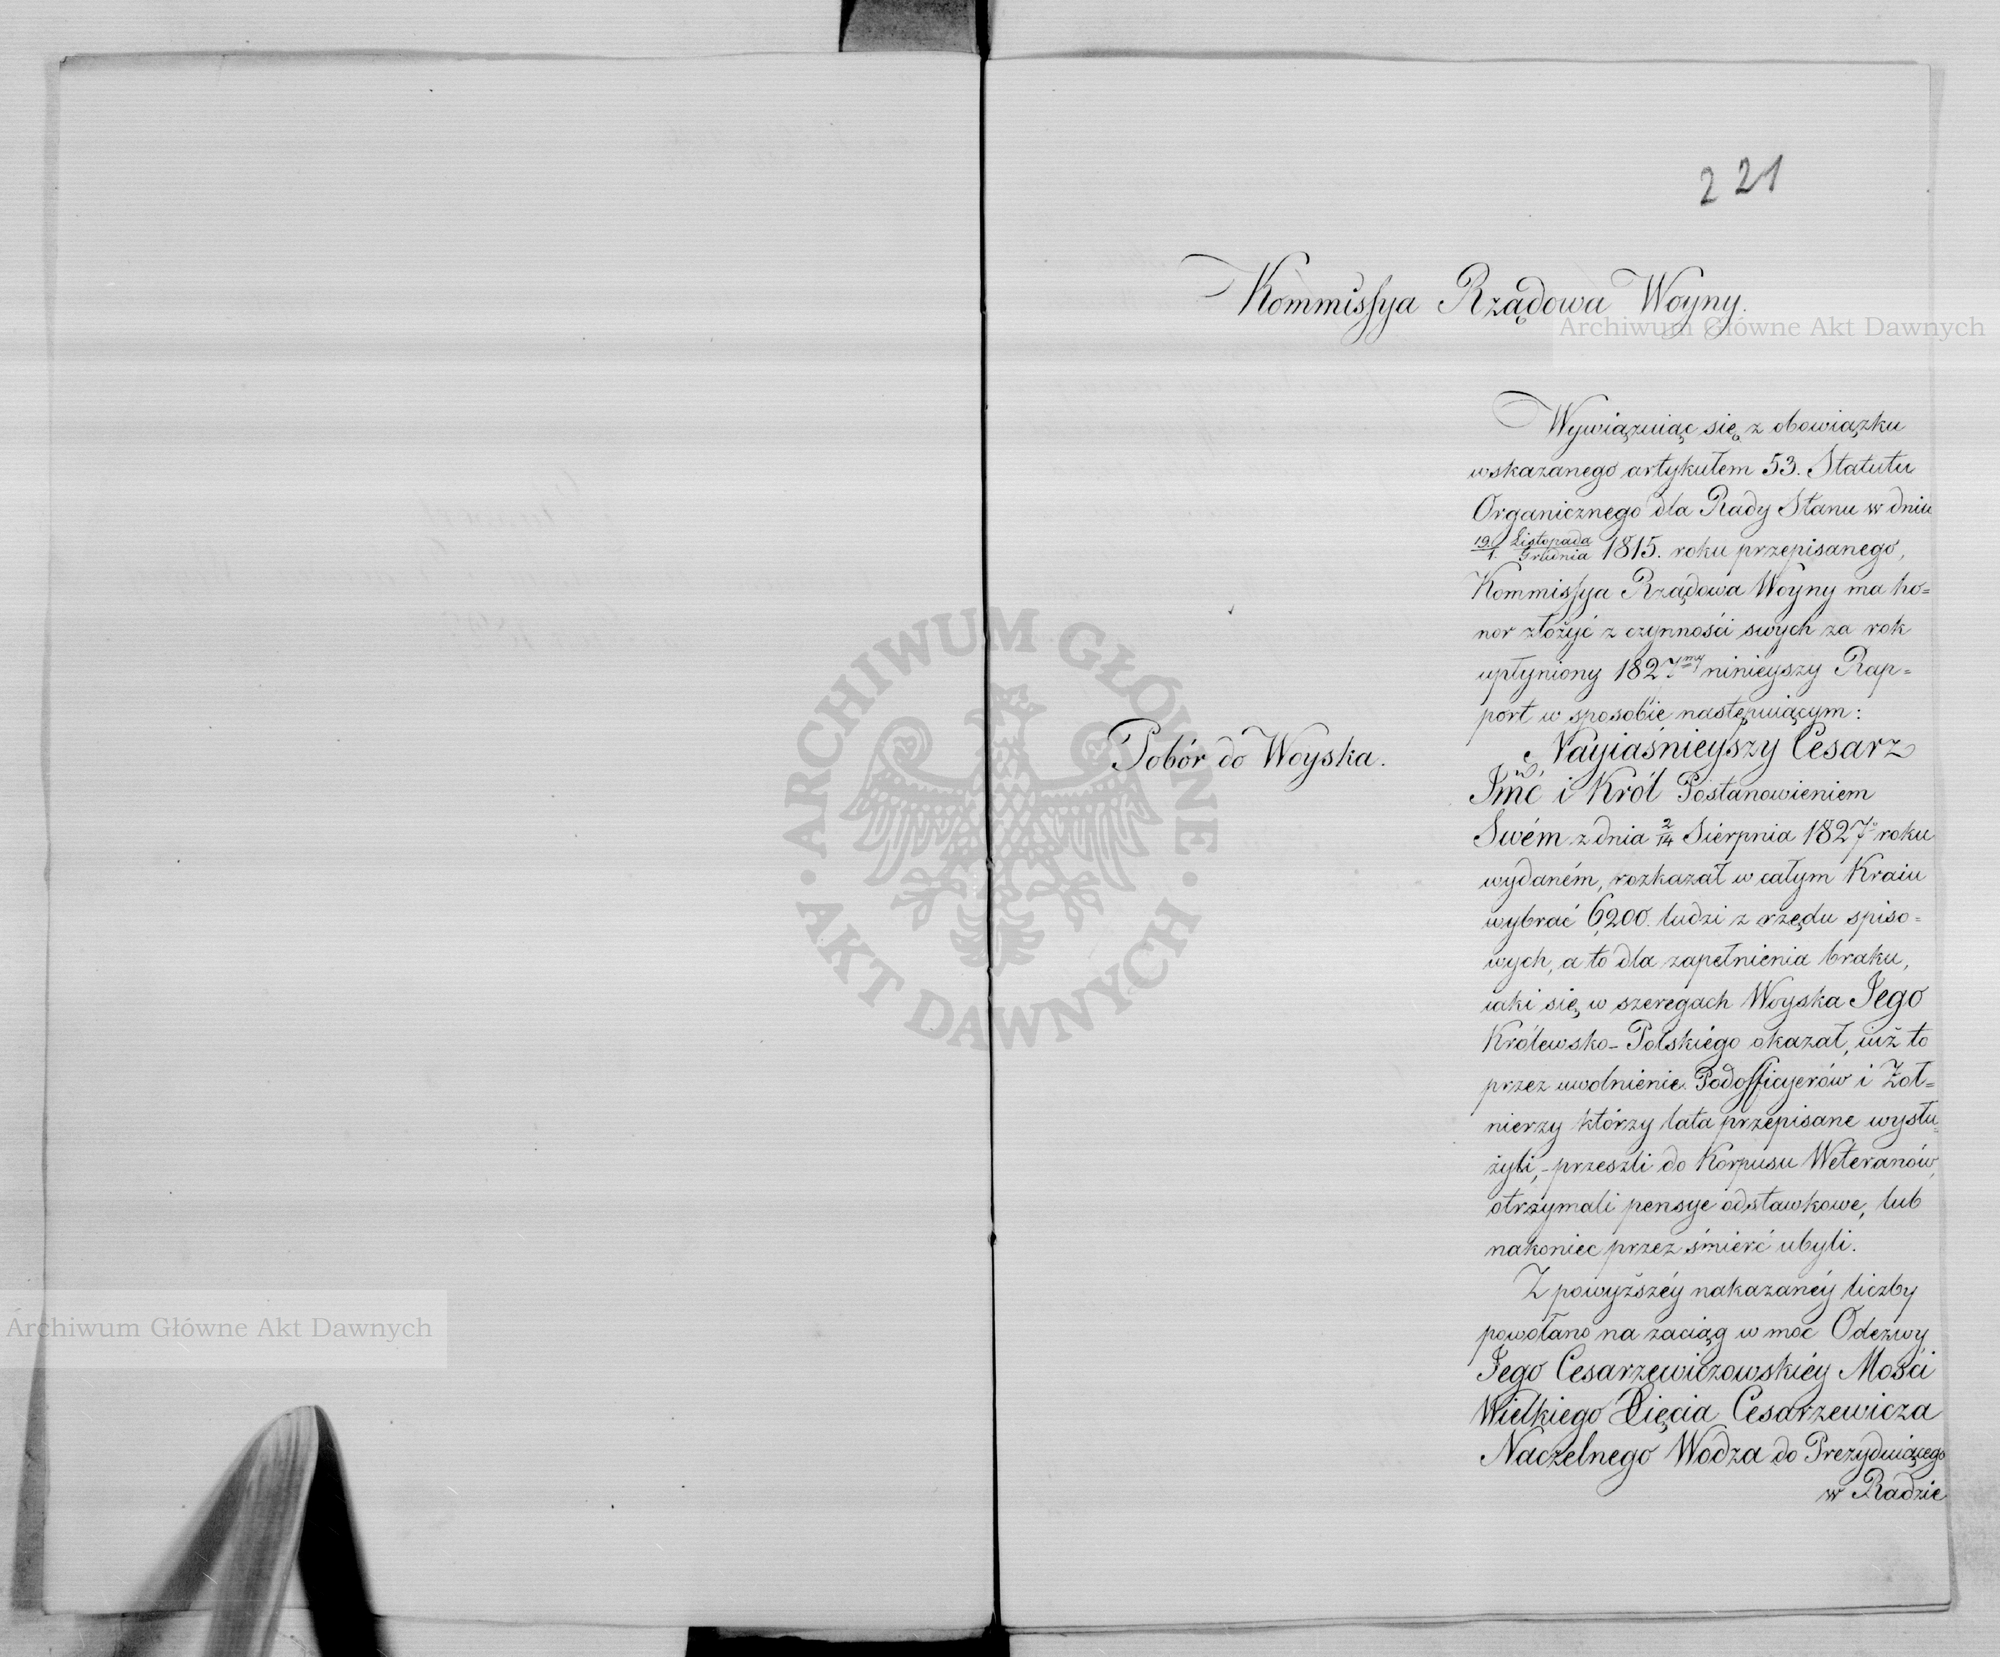 221
Kommissya Rządowa Woyny.
Archiwum Główne Akt Dawnych
Wywiązuiąc się z obowiązku
wskazanego artykułem 53. Statutu
Organicznego dla Rady Stanu w dniu
19./1. Listopada/Grudnia 1815. roku przepisanego,
Kommissya Rządowa Woyny ma ho=
nor złożyć z czynności swych za rok
upłyniony 1827my ninieyszy Rap=
port w sposobie następuiącym:
Pobór do Woyska.
Nayiaśnieyszy Cesarz
Jmć i Król Postanowieniem
Swém z dnia 2/14 Sierpnia 1827o roku
wydaném, rozkazał w całym Kraiu
wybrać 6,200. ludzi z rzędu spiso=
wych, a to dla zapełnienia braku,
iaki się w szeregach Woyska Jego
Królewsko-Polskiégo okazał, iuż to
przez uwolnienie Podofficyerów i Żoł=
nierzy którzy lata przepisane wysłu=
żyli,- przeszli do Korpusu Weteranów,
otrzymali pensye odstawkowe, lub
nakoniec przez śmierć ubyli.
Z powyższéy nakazanéy liczby
powołano na zaciąg w moc Odezwy
Jego Cesarzewiczowskiéy Mości
Wielkiego Xięcia Cesarzewicza
Naczelnego Wodza do Prezyduiącego
w Radzie
ARCHIWUM GŁÓWNE
AKT DAWNYCH
Archiwum Główne Akt Dawnych